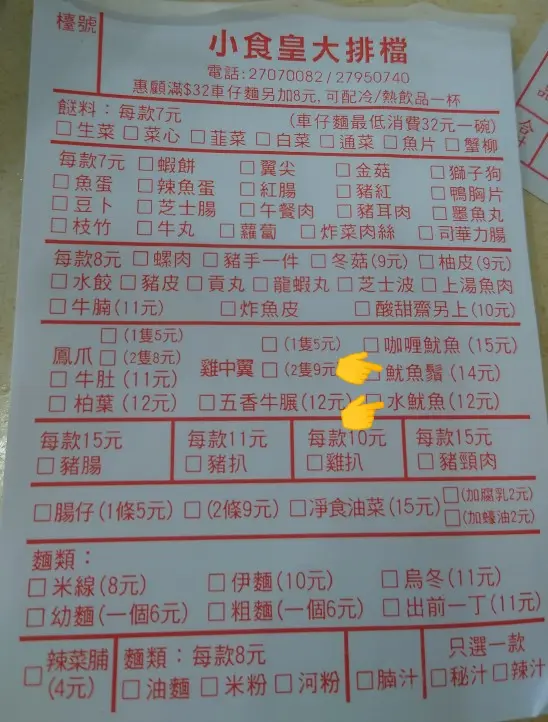 檯號
小食皇大排檔
電話:27070082/27950740
惠顧滿$32車仔麵另加8元,可配冷/熱飲品一杯
餸料:每款7元 (車仔麵最低消費32元一碗)
□生菜 □菜心 □韮菜 □白菜 □通菜 □魚片 □蟹柳
每款7元 □蝦餅 □翼尖 □金菇 □獅子狗
□魚蛋 □辣魚蛋 □紅腸 □豬紅 □鴨胸片
□豆卜 □芝士腸 □午餐肉 □豬耳肉 □墨魚丸
□枝竹 □牛丸 □蘿蔔 □炸菜肉絲 □司華力腸
每款8元 □螺肉 □豬手一件 □冬菇(9元) □柚皮(9元)
□水餃 □豬皮 □貢丸 □龍蝦丸 □芝士波 □上湯魚肉
□牛腩(11元) □炸魚皮 □酸甜齋另上(10元)
鳳爪 □(1隻5元) □(2隻8元)
□牛肚(11元)
□柏葉(12元)
雞中翼 □(1隻5元) □(2隻9元
□五香牛𦟌(12元)
□咖喱魷魚(15元)
□魷魚鬚(14元)
□水魷魚(12元)
每款15元 每款11元 每款10元 每款15元
□豬腸 □豬扒 □雞扒 □豬頸肉
□腸仔(1條5元) □(2條9元) □淨食油菜(15元) □(加腐乳2元)
□(加蠔油2元)
麵類:
□米線(8元) □伊麵(10元) □烏冬(11元)
□幼麵(一個6元) □粗麵(一個6元) □出前一丁(11元)
□辣菜脯
(4元)
麵類:每款8元
□油麵 □米粉 □河粉
□腩汁
只選一款
□秘汁 □辣汁